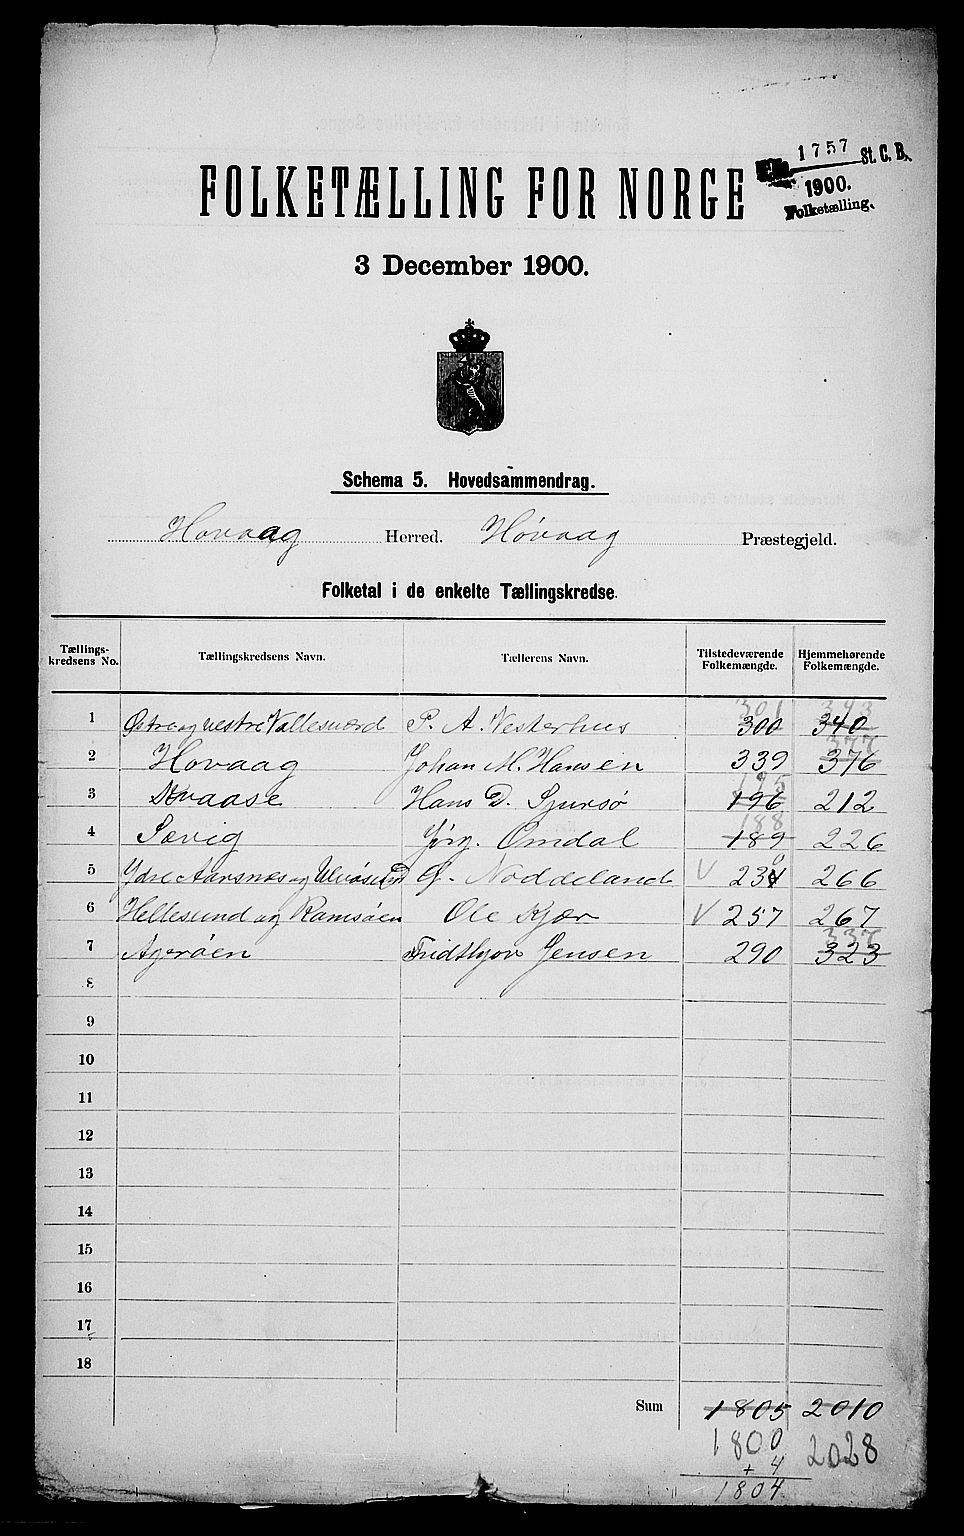 1757 St. C. B.
1900.
Folketælling.
FOLKETÆLLING FOR NORGE
3 December 1900.
Schema 5. Hovedsammendrag.
Hovaag Herred. Høvaag Præstegjeld.
Folketal i de enkelte Tællingskredse.
Tællings-kredsens No. Tællingskredsens Navn. Tællerens Navn. Tilstedeværende Folkemængde. Hjemmehørende Folkemængde.
301 343
1 Østre og vestre Vallesværd P. A. Vesterhus 300 340
377
2 Hovaag Johan M. Hansen 339 376
195
3 Kvaase Hans D. Sjursø 196 212
188
4 Sævig Jørg. Omdal 189 226
5 Ydre Aarsnæs og Ulvøsund G. Noddeland V 234 266
0
6 Hellesund og Ramsøen Ole Kjær V 257 267
337
7 Agerøen Fridthjov Jensen 290 323
8
9
10
11
12
13
14
15
16
17
18
Sum 1805 2010
1800 2028
+ 4
1804.